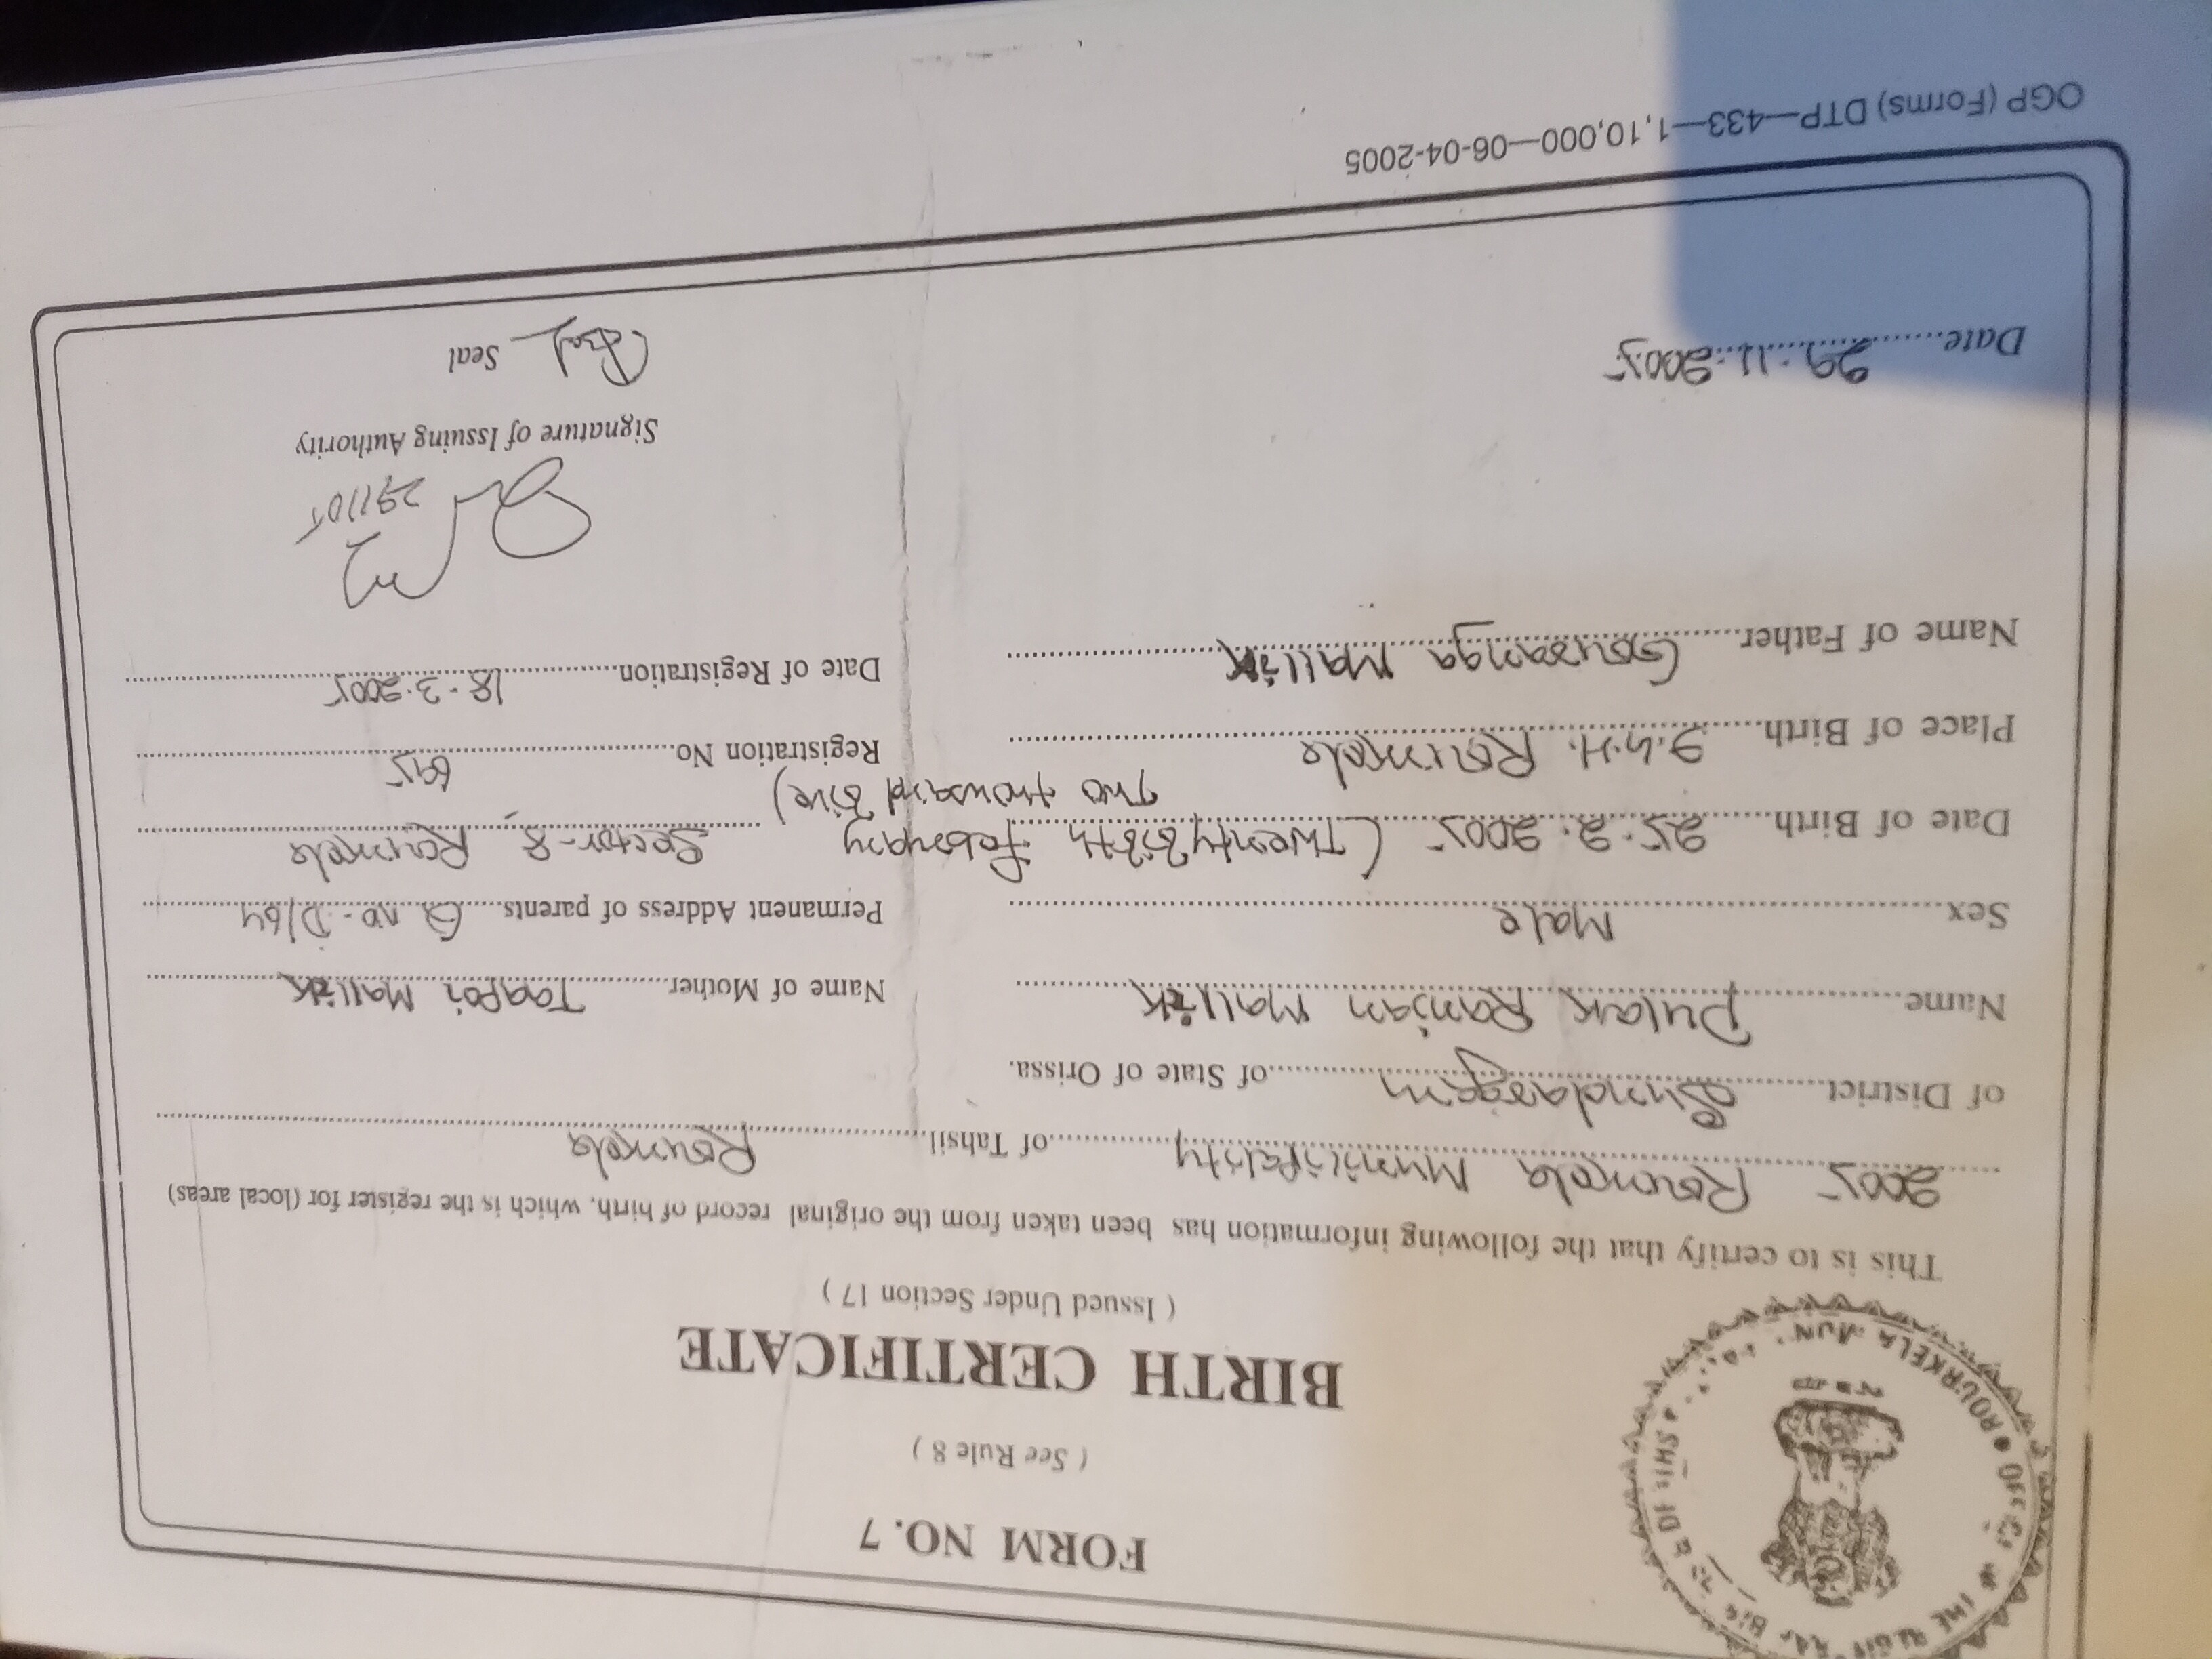 FORM NO. 7
( See Rule 8 )
BIRTH CERTIFICATE
( Issued Under Section 17 )
This is to certify that the following information has been taken from the original record of birth, which is the register for (local areas)
2005 Rourkela Municipality of Tahsil Rourkela
of District Sundargarh of State of Orissa.
Name Pulak Ranjan Mallik
Name of Mother Mallik
Sex Male
Permanent Address of parents Q. no - D/64
Date of Birth 25.2.2005 (Twenty fifth February
Two thousand five)
Sector-8, Rourkela
Place of Birth I.G.H. Rourkela
Registration No. 695
Name of Father Gouranga Mallik
Date of Registration 18.3.2005
29/11/05
Signature of Issuing Authority
Date 29.11.2005
Seal
OGP (Forms) DTP—433—1,10,000—06-04-2005
ROURKELA MUN